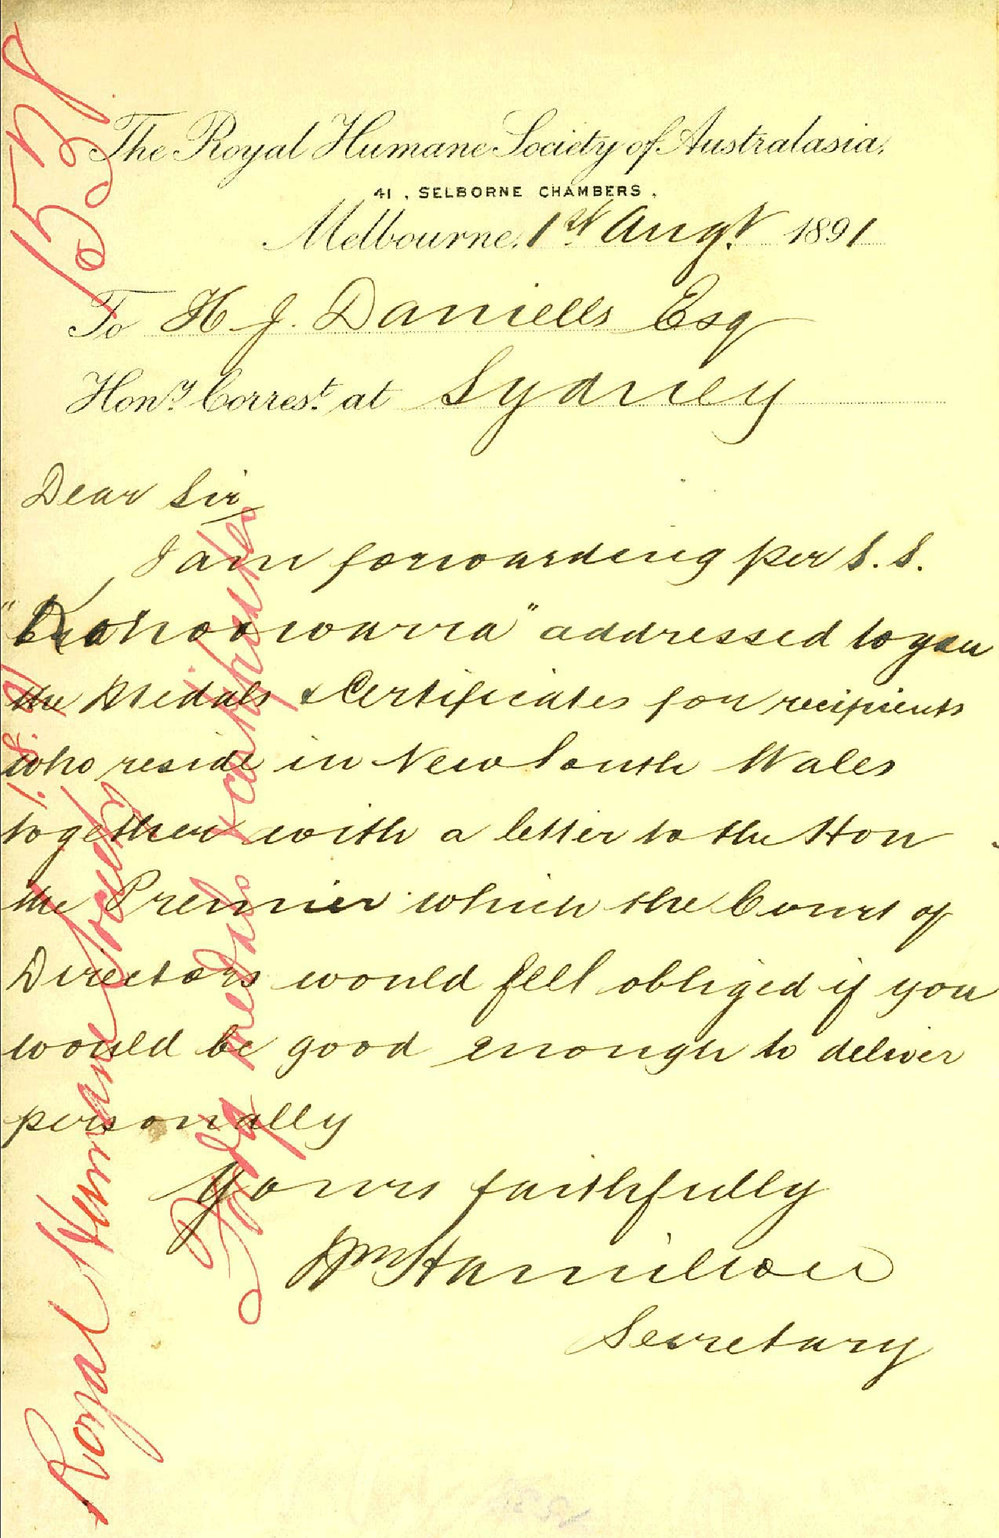 The Royal Humane Society of Australasia.
41, SELBORNE CHAMBERS.
Melbourne, 1st Augt. 1891
To H J. Daniells Esq
Hony. Correst. at Sydney
Dear Sir
I am forwarding per S.S.
addressed to you
the Medals & Certificates for recipients
who reside in New South Wales
together with a letter to the Hon
the Premier which the Court of
Directors would fell obliged if you
would be good enough to deliver
personally
Yours faithfully
Wm Hamilton
Secretary
Royal Humane Society 1.8.91
medals